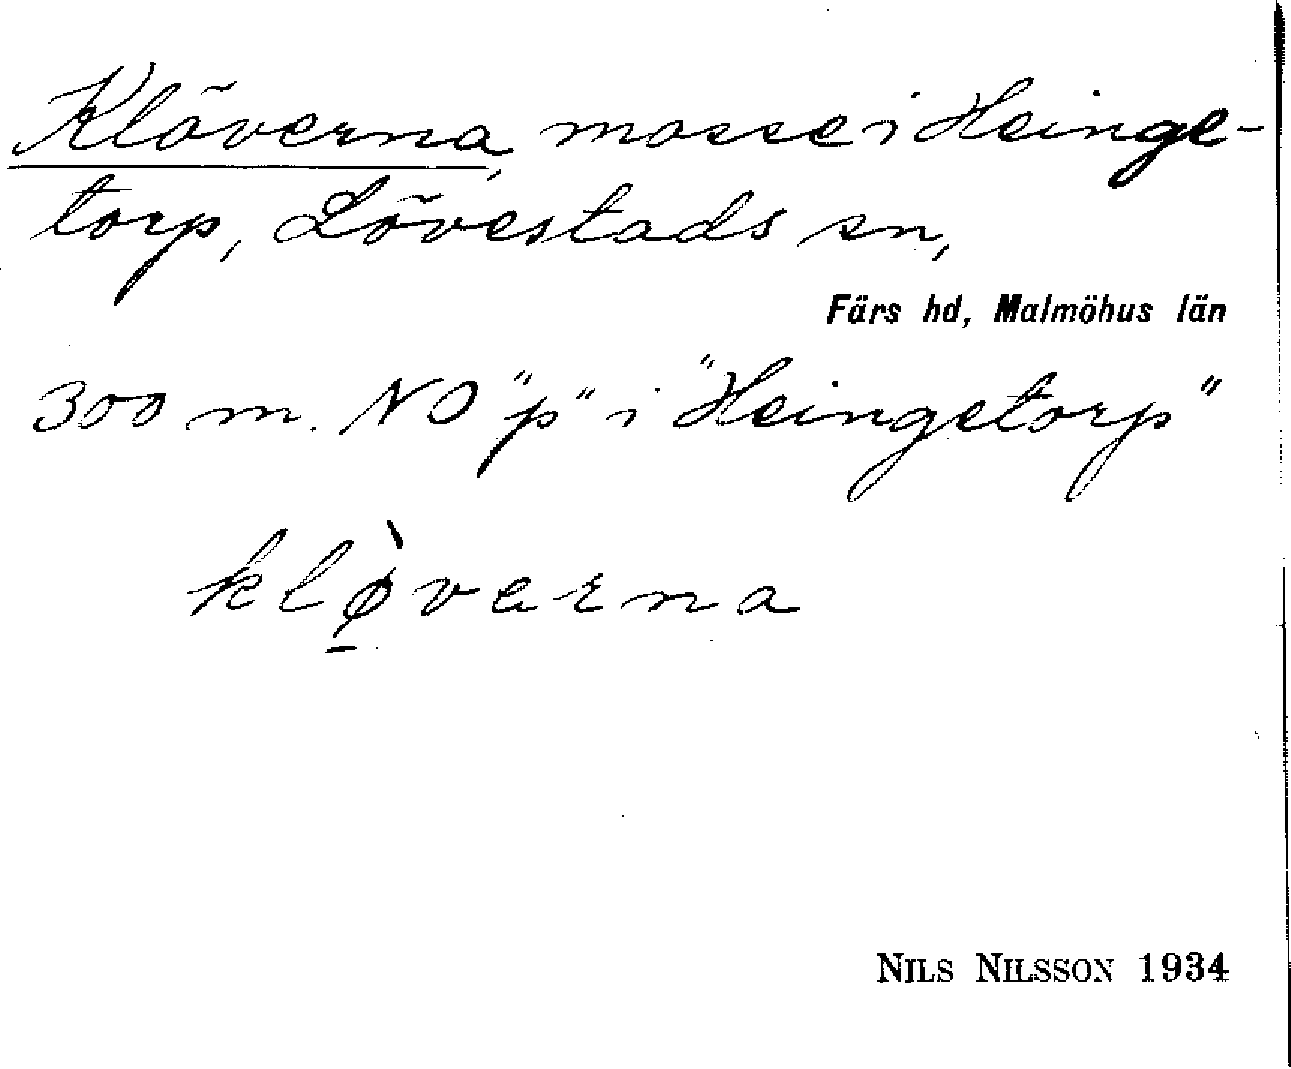 Klöverna, mosse i Heinge-
torp, Lövestads sn,
Färs hd, Malmöhus län
300 m. NO "p" i "Heingetorp"
klø̱̀varna
NILS NILSSON 1934